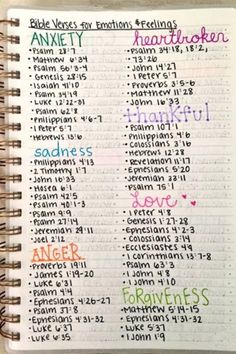 Bible Verses for Emotions & Feelings
ANXIETY
• Psalm 28:7
• Matthew 6:34
• Psalm 56:3-4
• Genesis 28:15
• Isaiah 41:10
• Psalm 34:4
• Luke 12:22-31
• Psalm 62:8
• Philippians 4:6-7
• 1 Peter 5:7
• Hebrews 13:6
sadness
• Philippians 4:13
• 2 Timothy 1:7
• John 16:33
• Hosea 6:1
• Psalm 42:5
• Psalm 40:1-3
• Psalm 9:9
• Psalm 27:14
• Jeremiah 29:11
• Joel 2:12
ANGER
• Proverbs 19:11
• James 1:19-20
• Psalm 4:4
• Ephesians 4:26-27
• Psalm 37:8
• Luke 6:31
• Ephesians 4:31-32
• Luke 6:37
heartbroken
• Psalm 34:18,
• 73:26
• John 14:27
• 1 Peter 5:7
• Proverbs 3:5
• Hebrews 13:8
thankful
• Psalm 107:1
• Philippians 4:6
• Colossians 3:16
• Hebrews 12:28
• Revelation 11:17
• Ephesians 5:20
• Jeremiah 33:11
• Psalm 75:1
Love
• 1 Peter 4:8
• Genesis 2:18
• Ephesians 4:2-3
• Colossians 3:14
• Ecclesiastes 4:9
• 1 Corinthians 13:7-8
• Psalm 63:3
• John 3:16
• 1 John 4:10
FORGIVENESS
• Matthew 5:14-15
• Ephesians 4:31-32
• Luke 6:37
• 1 John 1:9
• 1 John 4:10